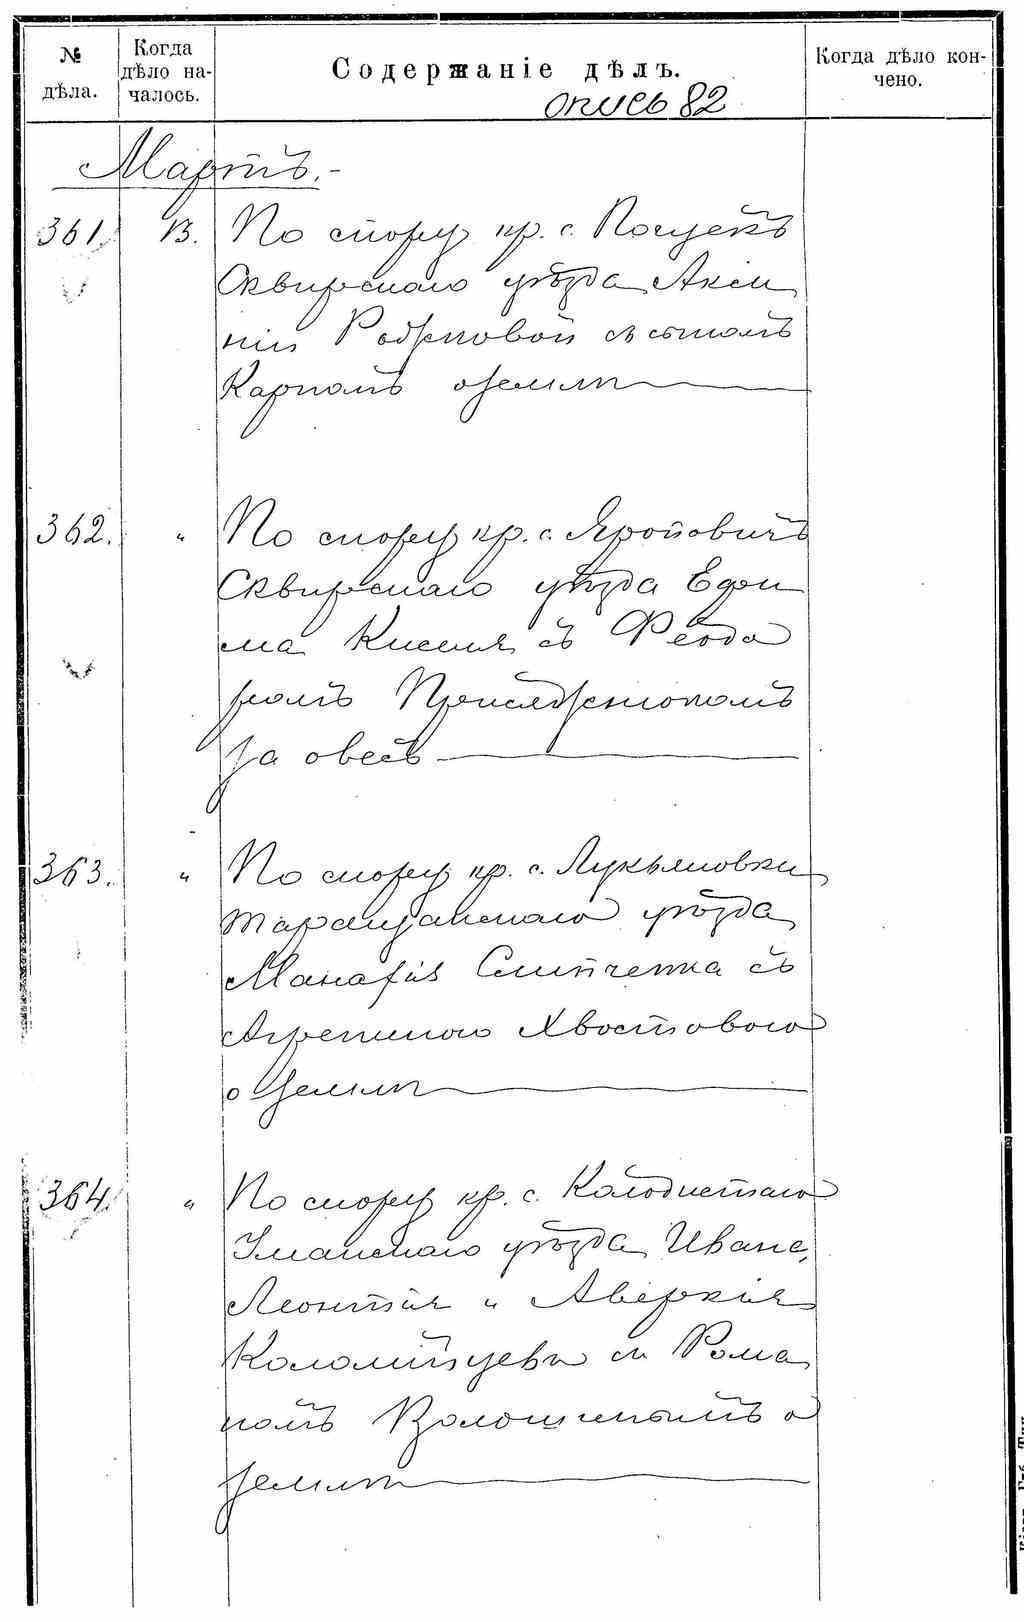 № дѣла.
Когда дѣло на-
чалось.
Содержаніе дѣлъ.
Когда дѣло кон-
чено.
опись 82
Мартъ.-
361. 13. По спору кр. с. Почуекъ
Сквирскаго уѣзда Акси
ніи Робжновой съ сыномъ
Карпомъ о землѣ
362. „ По спору кр. с. Яроповичъ
Сквирскаго уѣзда Ефи
ма Киселя съ Феодо
ромъ Присяжнюкомъ
за овесъ
363. „ По спору кр. с. Лукьяновки
Таращанскаго уѣзда
Манафія Слипченка съ
Агрепиною Хвостовою
о землѣ
364. „ По спору кр. с. Колодистаго
Уманскаго уѣзда Ивана,
Леонтія и Аверкія
Коломійцевъ съ Рома
номъ Волошинымъ о
землѣ